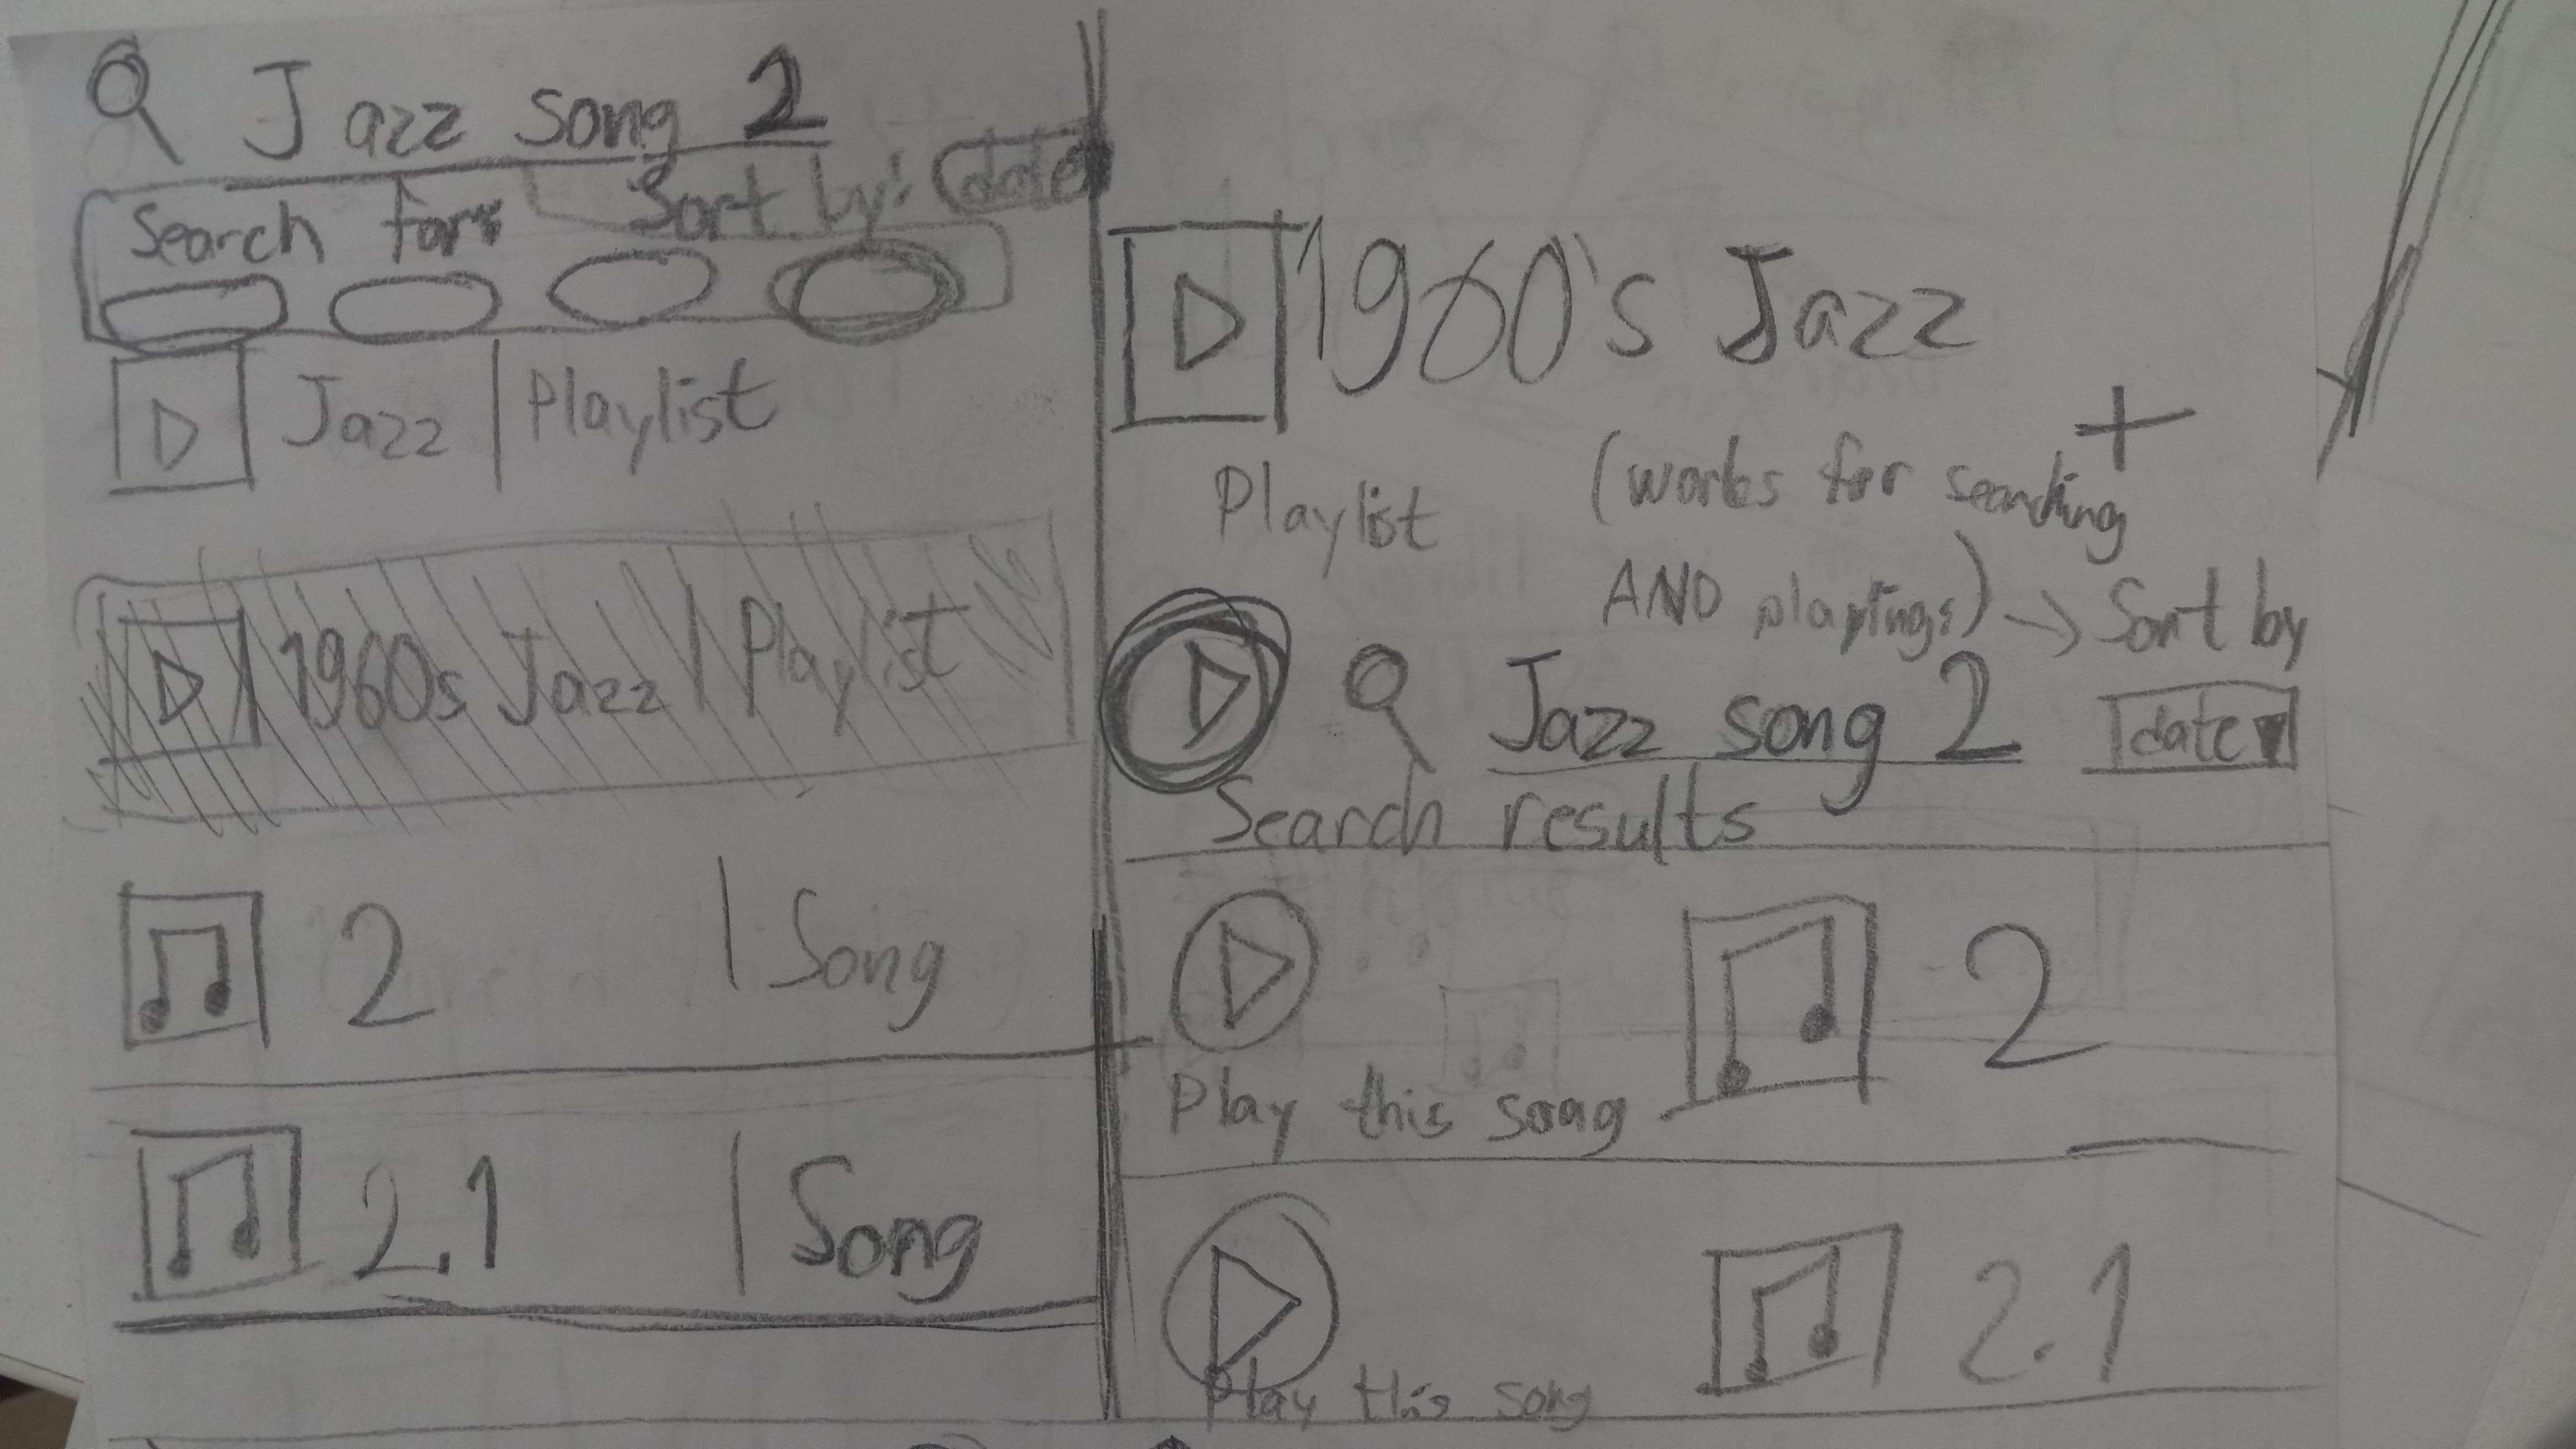 Jazz song 2
Search for:
Sort by: date
Jazz | Playlist
1960s Jazz | Playlist
2 | Song
2.1 | Song
1960's Jazz
+
Playlist
(works for searching
AND playings) → Sort by
Jazz song 2
date▼
Search results
2
Play this song
2.1
Play this song